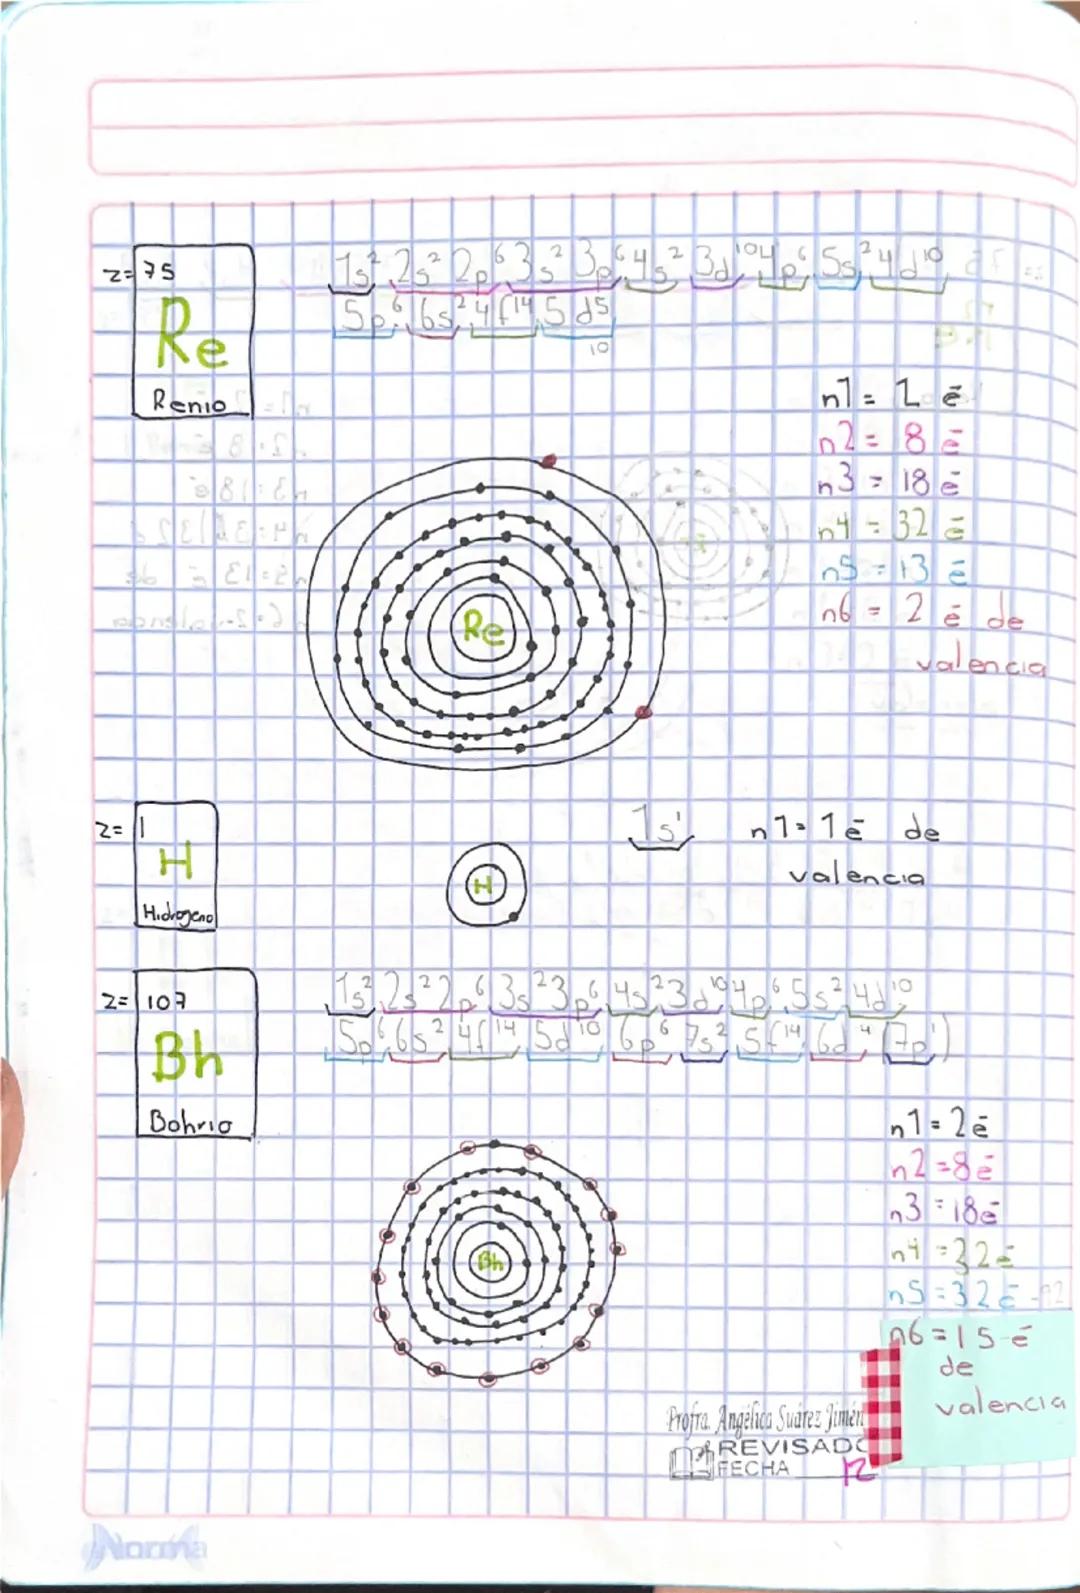 Z= 75
Re
Renio
1s² 2s² 2p⁶ 3s² 3p⁶ 4s² 3d¹⁰ 4p⁶ 5s² 4d¹⁰
5p⁶ 6s² 4f¹⁴ 5d5
10
n1 = 2 ē
n2 = 8 ē
n3 = 18 ē
n4 = 32 ē
n5 = 13 ē
n6 = 2 ē de
valencia
Re
Z= 1
H
Hidrogeno
H
1s¹
n1= 1ē de
valencia
Z= 107
Bh
Bohrio
1s² 2s² 2p⁶ 3s² 3p⁶ 4s² 3d¹⁰ 4p⁶ 5s² 4d¹⁰
5p⁶ 6s² 4f¹⁴ 5d¹⁰ 6p⁶ 7s² 5f¹⁴ 6d⁴ (7p¹)
Bh
n1 = 2ē
n2 =8ē
n3 = 18ē
n4 =32ē
n5 =32ē
n6 = 15 ē
de
valencia
Profra. Angélica Suárez Jimén
REVISADO
FECHA 12
Norma